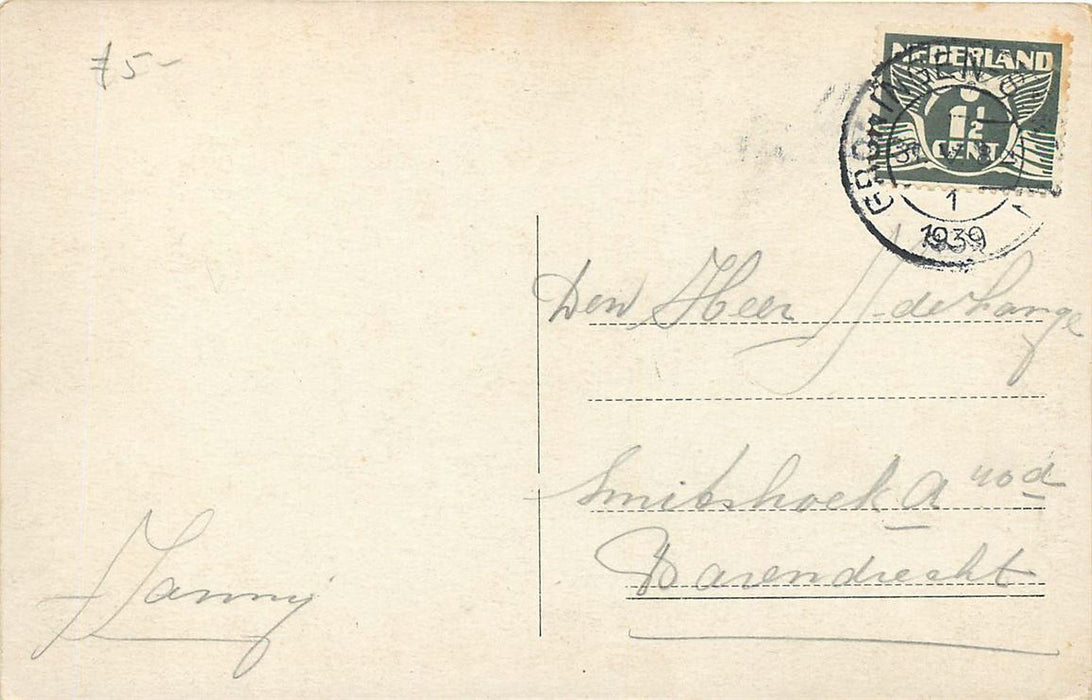 75-
NEDERLAND
1½
CENT
GRONINGEN
1
1939
Den Heer J. de Lange
Smitshoek A 40d
Barendrecht
Janny